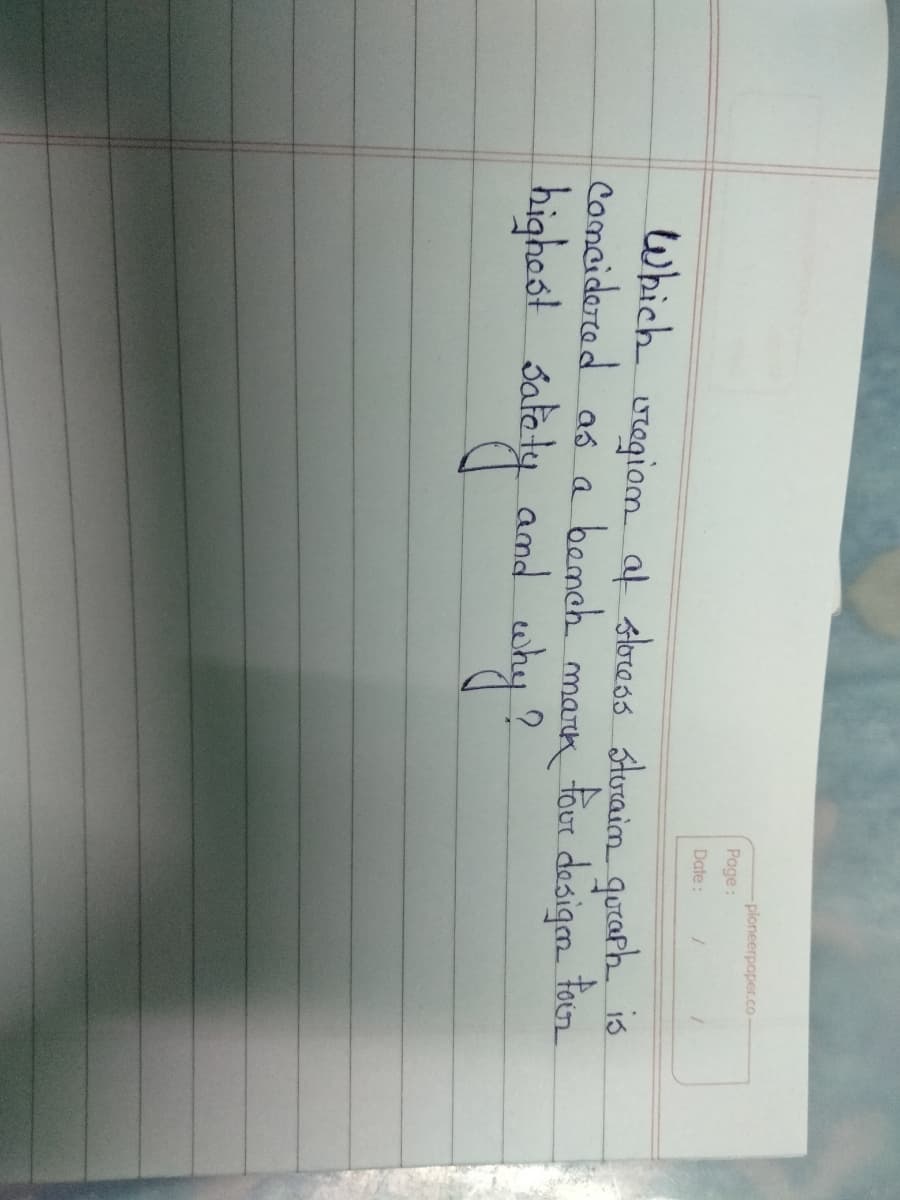 pioneerpaper.co
Page:
Date: / /
Which region of stress strain graph is
concidered as a bench mark for design for
highest safety and why?